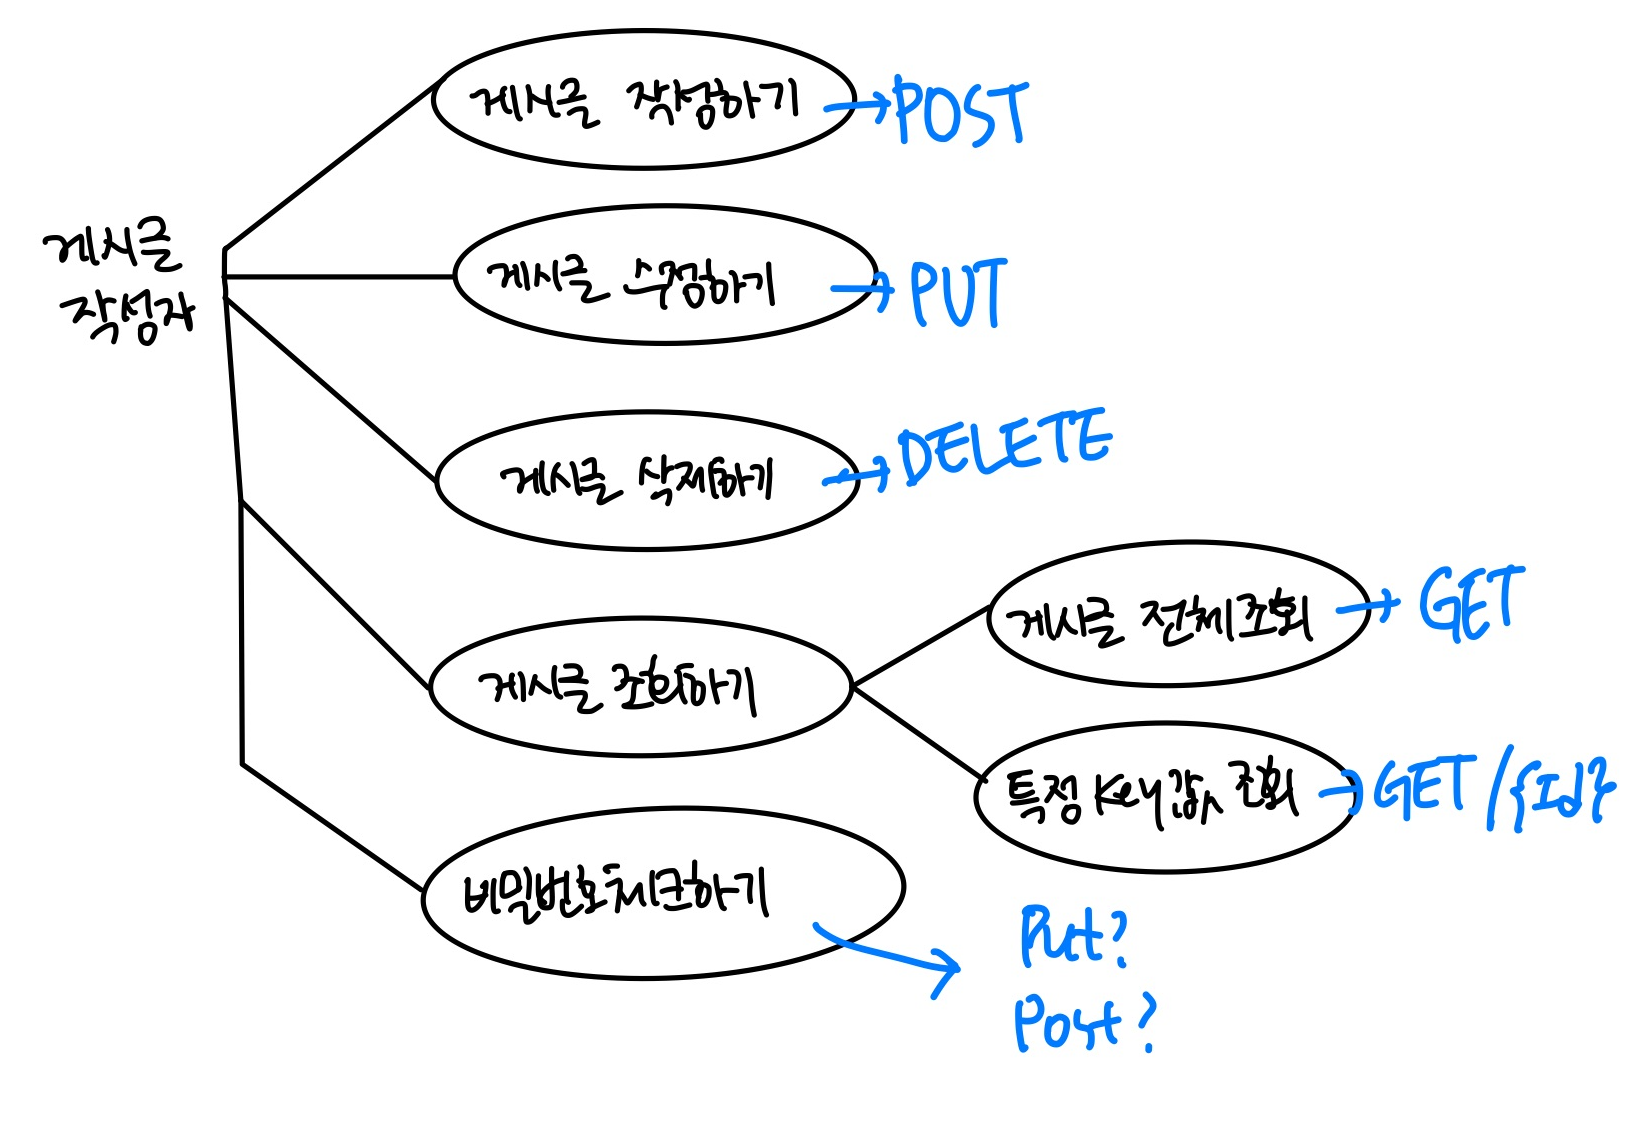 게시글
작성자
게시글 작성하기
POST
게시글 수정하기
PUT
게시글 삭제하기
DELETE
게시글 조회하기
게시글 전체조회
GET
특정 key값 조회
GET /{Id}
비밀번호체크하기
Put?
Post?